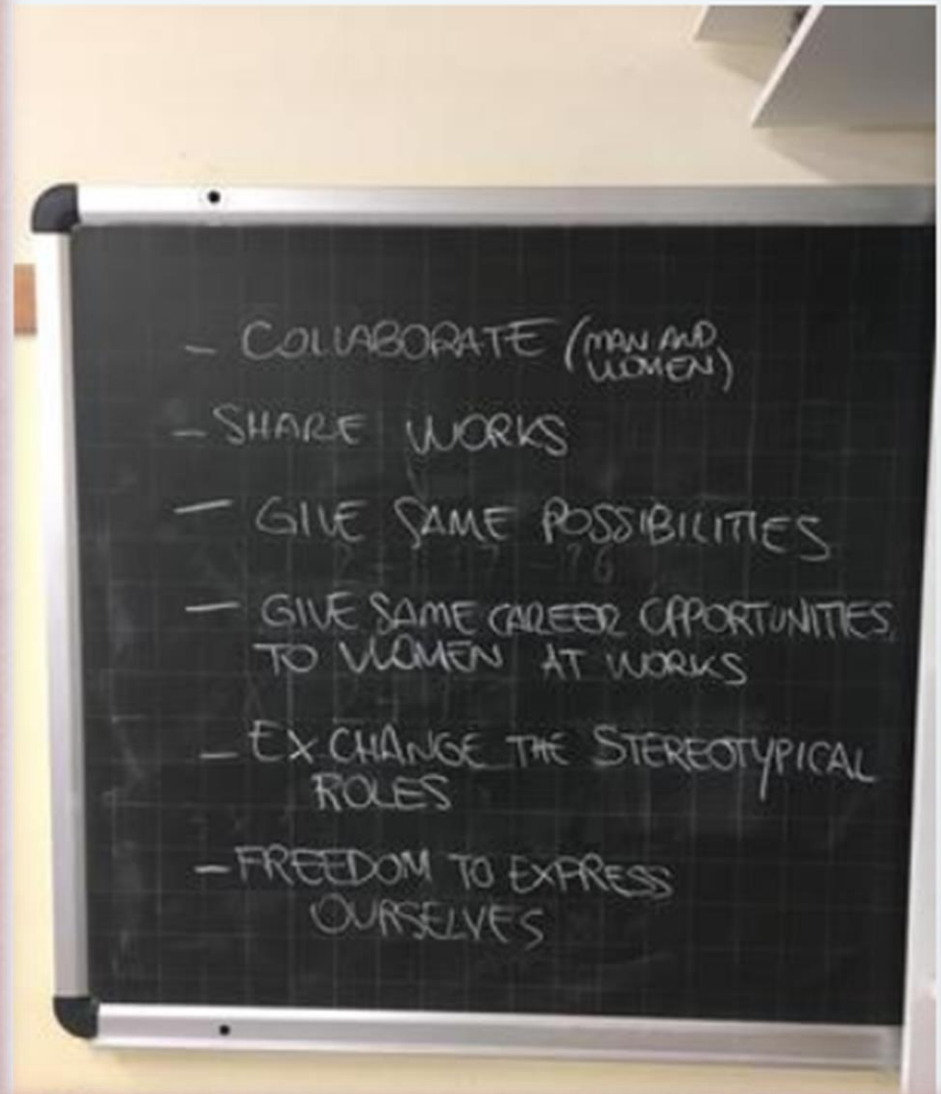 - COLLABORATE (MAN AND
WOMEN)
- SHARE WORKS
- GIVE SAME POSSIBILITIES
- GIVE SAME CAREER OPPORTUNITIES
TO WOMEN AT WORKS
- EXCHANGE THE STEREOTYPICAL
ROLES
- FREEDOM TO EXPRESS
OURSELVES